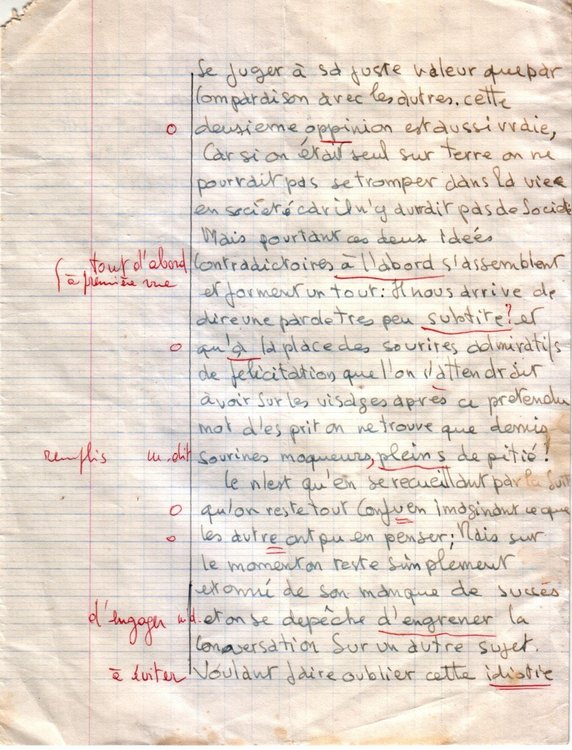 Se juger à sa juste valeur que par
Comparaison avec les autres. cette
o deusieme oppinion est aussi vraie,
Car si on était seul sur terre on ne
pourrait pas se tromper dans la viee
en societé car il n'y aurait pas de Societ
Mais pourtant ces deux Ideés
tout d'abord Contradictoires à l'abord s'assemblent
à première vue et forment un tout : Il nous arrive de
dire une parole tres peu subtite? et
o qu'a la place des sourires admiratifs
de felicitation que l'on s'attendrait
à avoir Sur les visages après ce pretendu
mot d'esprit on ne trouve que demis
remplis m. dit sourines moqueurs, pleins de pitié !
Ce n'est qu'en se recueillant par la Suit
o qu'on reste tout Confu en Imaginant ce que
o les autre ont pu en penser ; Mais sur
le moment on reste Simplement
etonné de son manque de succès
d'engager m.d. et on se depêche d'engrener la
Conversation Sur un autre sujet.
à éviter Voulant faire oublier cette idiotie